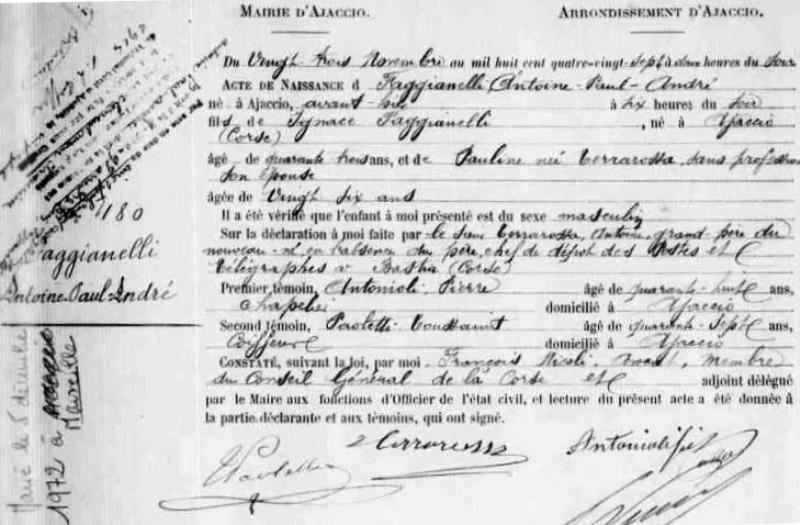 MAIRIE D'AJACCIO.
ARRONDISSEMENT D'AJACCIO.
Du Vingt trois Novembre au mil huit cent quatre-vingt-sept à deux heures du soir
ACTE DE NAISSANCE d Faggianelli Antoine-Paul-André
né à Ajaccio, avant-hier à six heures du soir
fils de Ignace Faggianelli, né à Ajaccio
(Corse)
âgé de quarante trois ans, et de Pauline née Terrarossa, sans profession
son épouse
âgée de Vingt six ans
Il a été vérifié que l'enfant à moi présenté est du sexe masculin
Sur la déclaration à moi faite par le sieur Terrarossa, Antoine, grand père du
nouveau-né, en l'absence du père, chef de dépôt des Postes et
télégraphes à Bastia (Corse)
Premier témoin, Antonioli Pierre âgé de quarante-huit ans,
chapelier domicilié à Ajaccio
Second témoin, Paoletti Toussaint âgé de quarante-sept ans,
Coiffeur domicilié à Ajaccio
CONSTATÉ, suivant la loi, par moi François Nicoli, Avocat, membre
du Conseil Général de la Corse et adjoint délégué
par le Maire aux fonctions d'Officier de l'état civil, et lecture du présent acte a été donnée à
la partie déclarante et aux témoins, qui ont signé.
480
Faggianelli
Antoine-Paul-André
Marié le 8 décembre
1972 à Marseille
Paoletti
Terrarossa